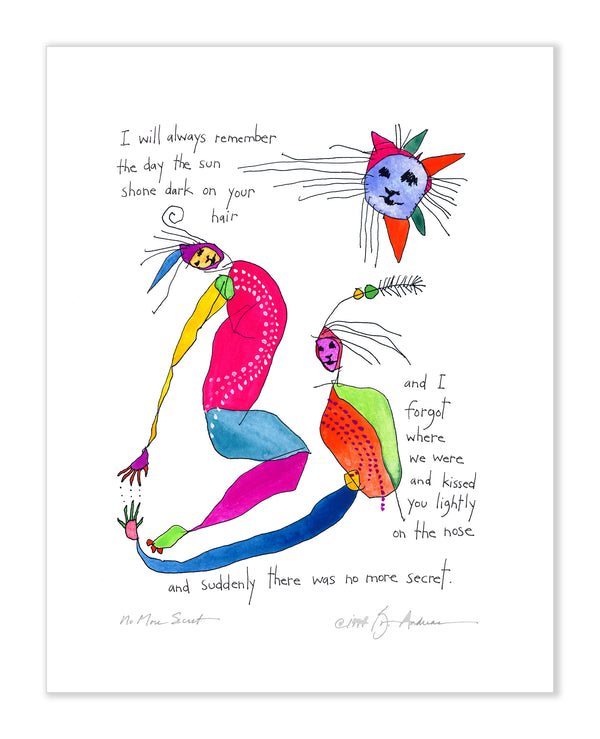 I will always remember
the day the sun
shone dark on your
hair
and I
forgot
where
we were
and kissed
you lightly
on the nose
and suddenly there was no more secret.
No More Secret
©1994 Andreas